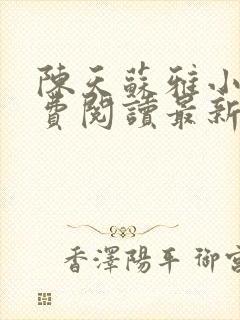 陳天蘇雅小
費閱讀最新
香澤陽平 御宮